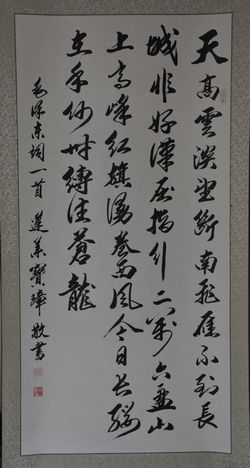 天高雲淡望断南飛雁不到長
城非好漢屈指行二萬六盘山
上高峰红旗漫卷西風今日長纓
在手何時縛住蒼龍
毛泽东词一首 寶璋敬書